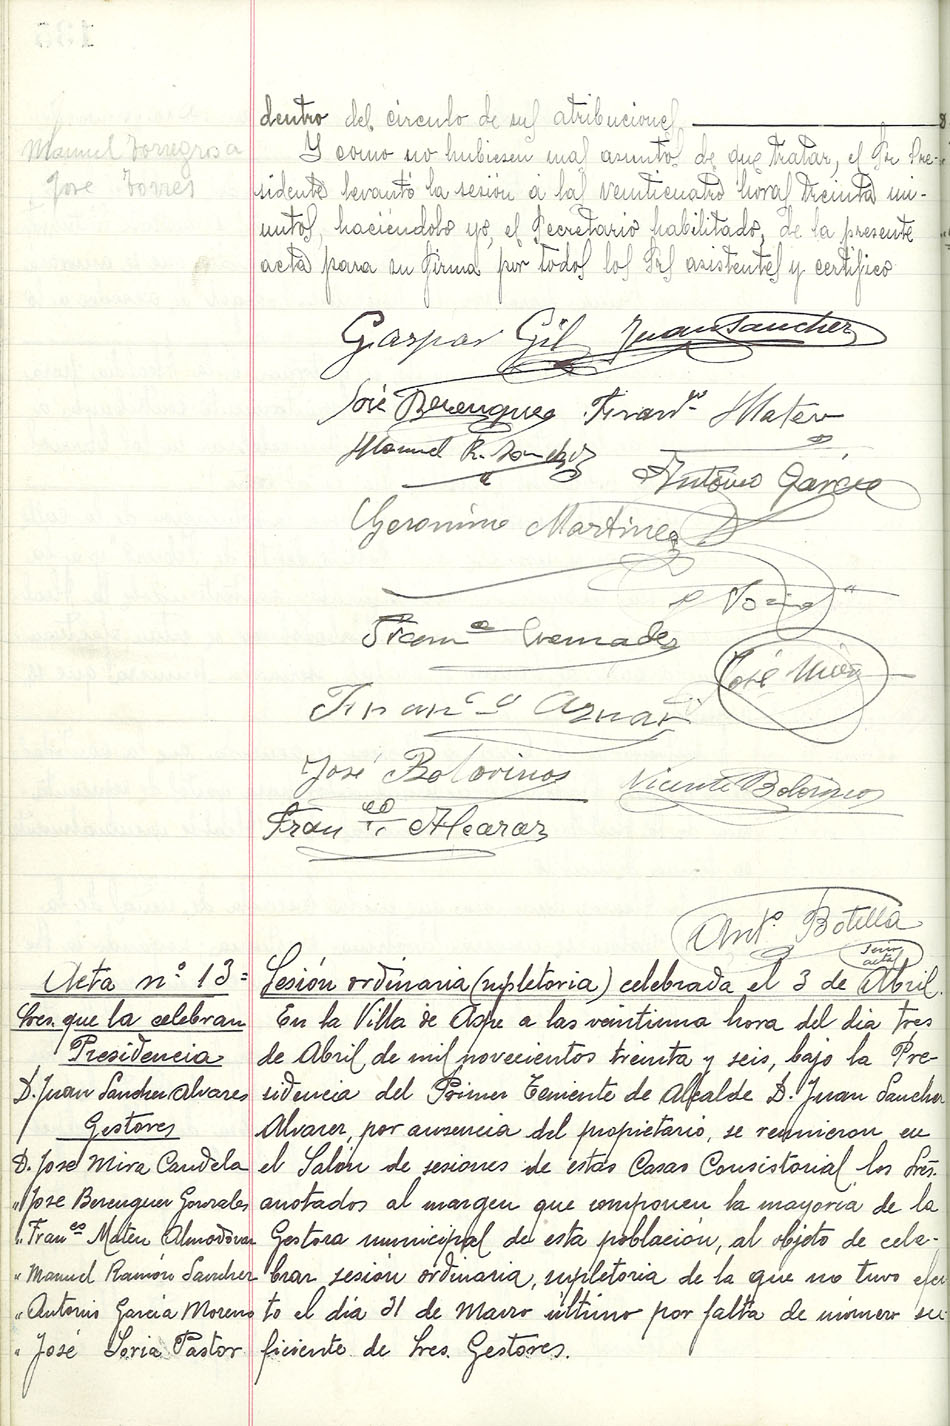 dentro del círculo de sus atribuciones
Manuel Torregrosa
José Torres
Y como no hubiesen mas asuntos de que tratar, el Sr Pre-
sidente levantó la sesión a las veinticuatro horas treinta mi-
nutos, haciendolo yo, el Secretario habilitado, de la presente
acta para su firma por todos los Srs asistentes y certifico
Gaspar Gil Juan Sanchez
José Berenguer Franco Mateu
Manuel R. Sanchez
Antonio García
Geronimo Martinez
Franco Cremades
José Mira
Franco Aznar
José Botovinos Vicente
Franco Alcaraz
Anto Botella
Acta nº 13=
Sres. que la celebran
Presidencia
D. Juan Sanchez Alvares
Gestores
D. José Mira Candela
" José Berenguer Gonzales
" Franes Mateu Almodovar
" Manuel Ramón Sanchez
" Antonio García Moreno
" José Soria Pastor
Sesión ordinaria (supletoria) celebrada el 3 de Abril.
En la Villa de Aspe a las veintiuna hora del dia tres
de Abril de mil novecientos treinta y seis, bajo la Pre-
sidencia del Primer Teniente de Alcalde D. Juan Sanchez
Alvarez, por ausencia del propietario, se reunieron en
el Salón de sesiones de estas Casas Consistorial los Sres.
anotados al margen que componen la mayoría de la
Gestora municipal de esta población, al objeto de cele-
brar sesión ordinaria, supletoria de la que no tuvo efec
to el día 31 de Marzo último por falta de número su-
ficiente de Sres. Gestores.